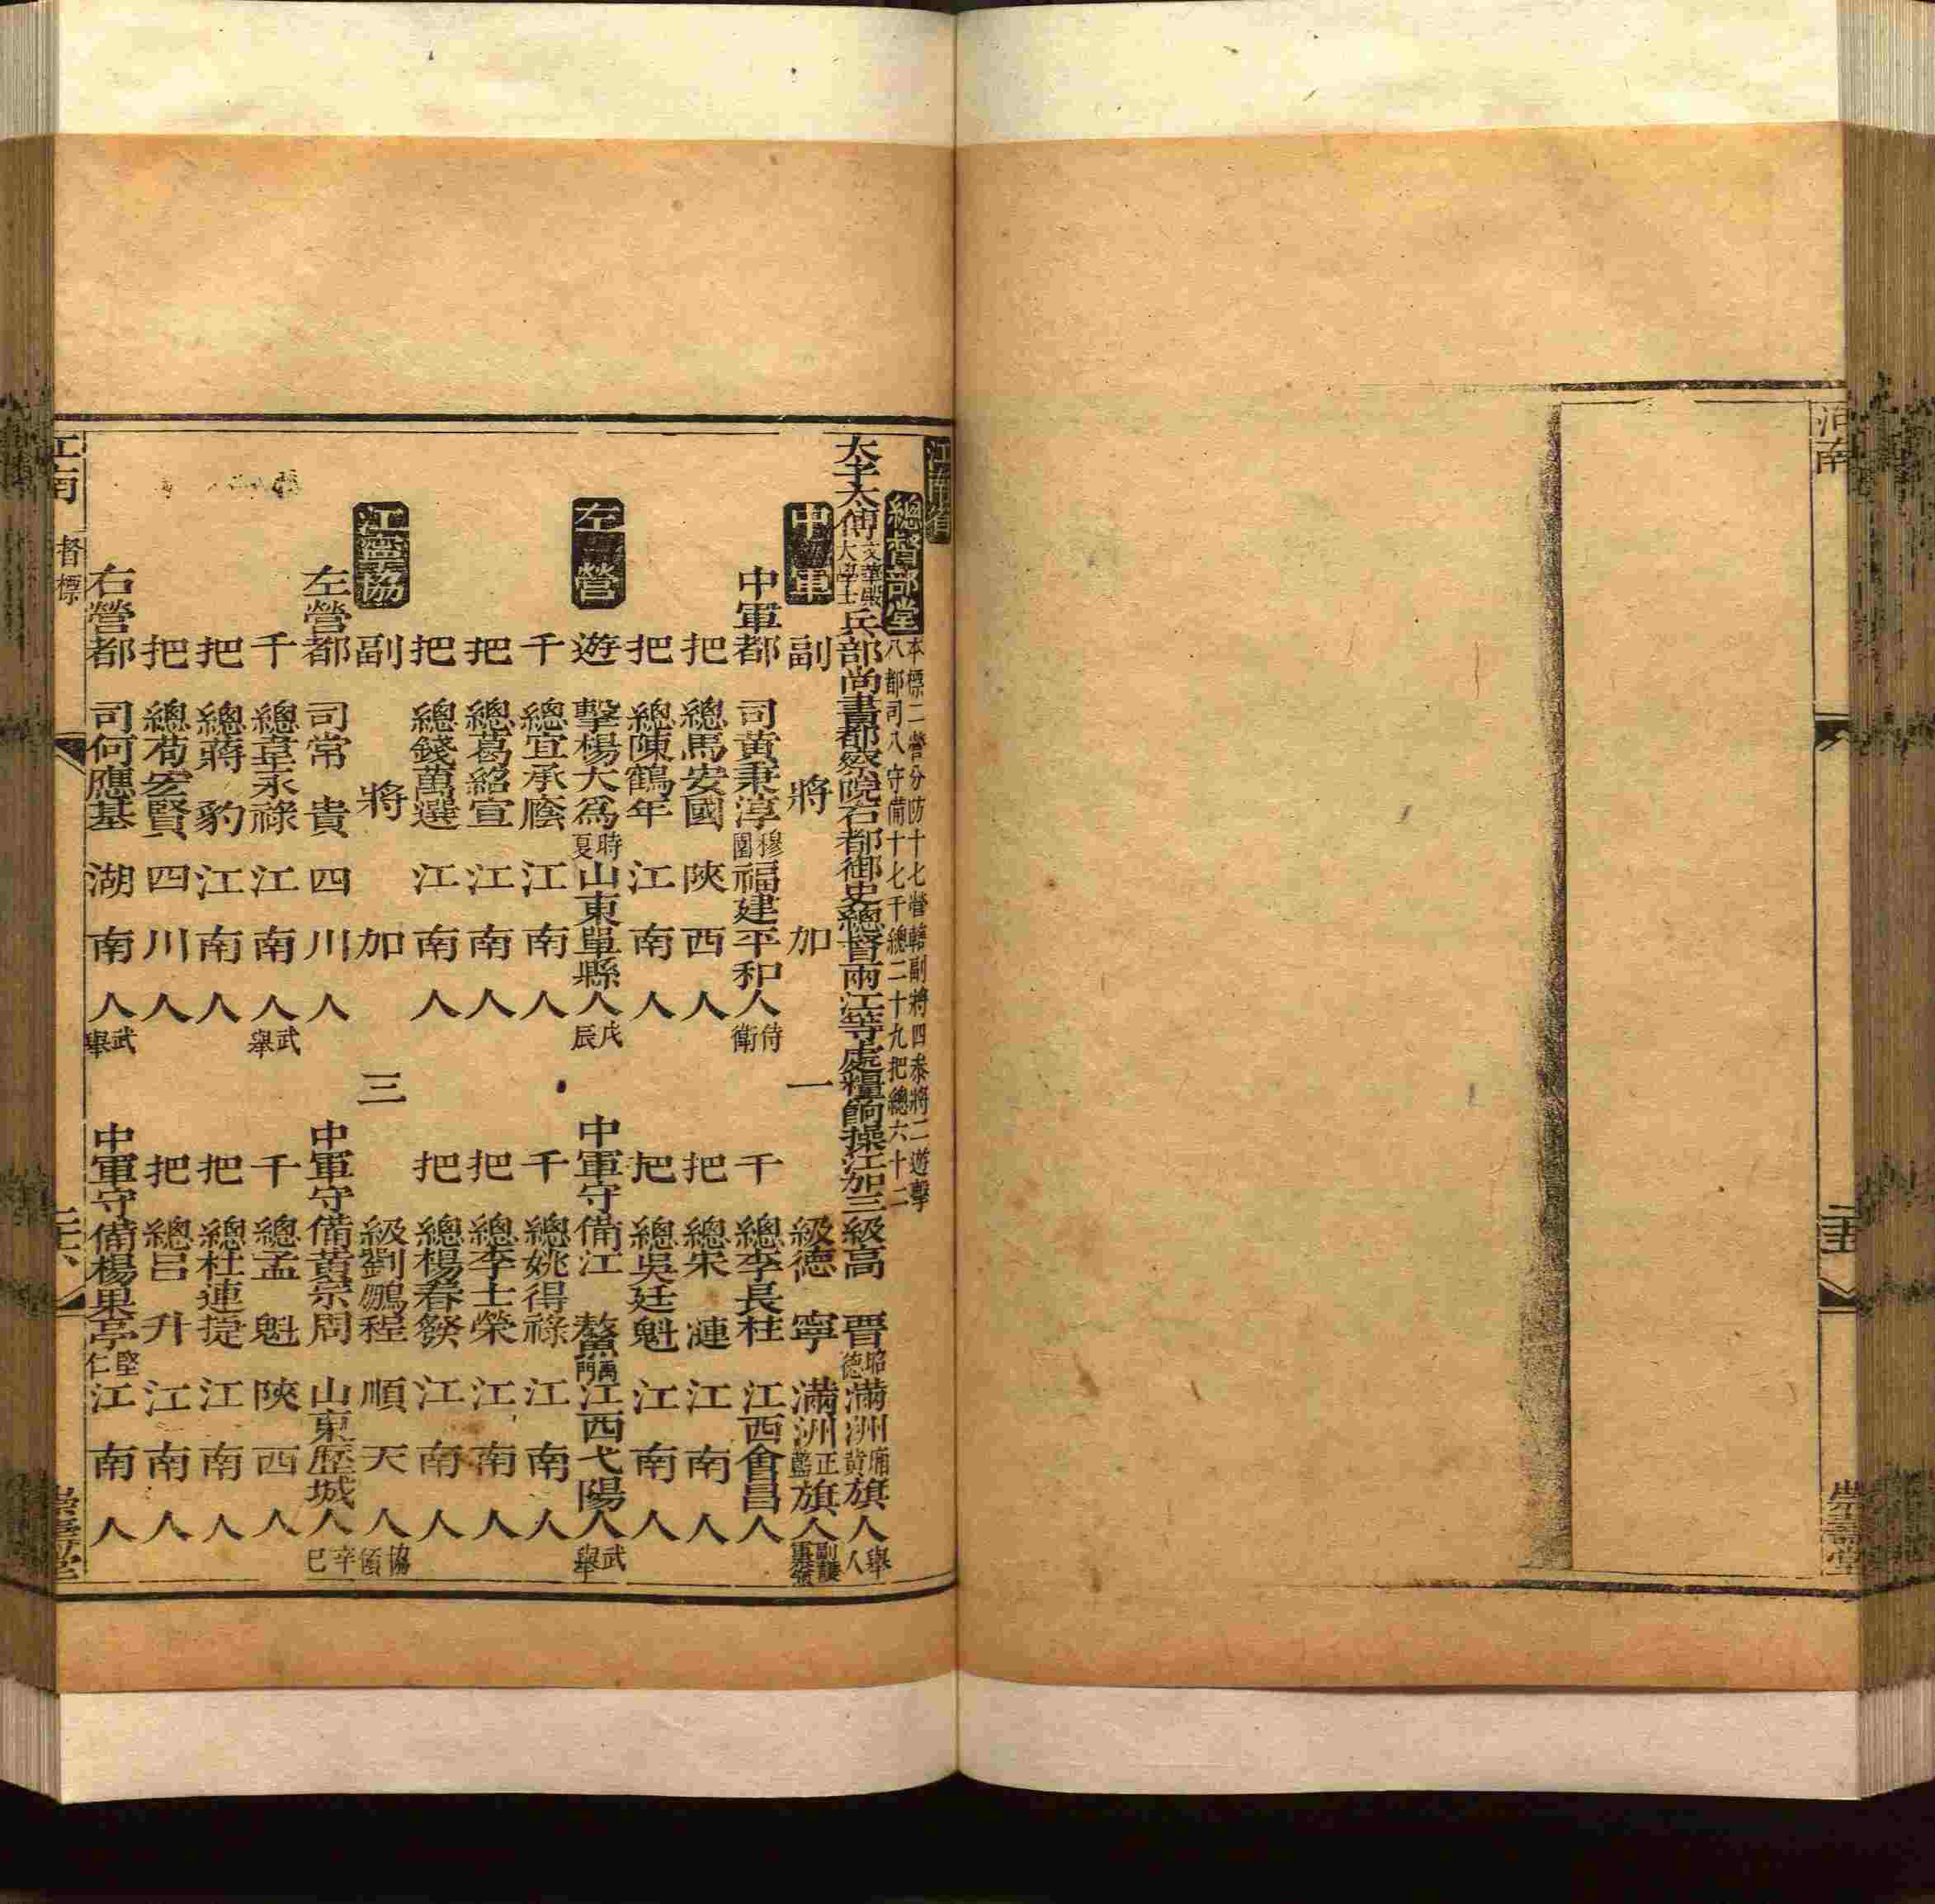 河南
崇壽堂
江南省
總督部堂 本標二營分防十七營轄副將四參將二遊擊
八都司八守備十七千總二十九把總六十二
太子太傅文華殿大學士兵部尚書都察院右都御史總督兩江等處糧餉操江加三級高晋昭德滿洲廂黃旗人舉人
中軍 副將加一級德寧滿洲正藍旗人
中軍都司黃秉淳穆園福建平和人侍衛 千總李長柱江西會昌人
把總馬安國陝西人 把總宋漣江南人
把總陳鶴年江南人 把總吳廷魁江南人
左營 遊擊楊大爲時夏山東單縣人戊辰 中軍守備江鰲禹門江西弋陽人武舉
千總宣承廕江南人 千總姚得祿江南人
把總葛紹宣江南人 把總李士榮江南人
把總錢萬選江南人 把總楊春發江南人
江寧協 副將加三級劉鵬程順天人
左營都司常貴四川人 中軍守備黃宗周山東歷城人辛巳
千總韋永祿江南人武舉 千總孟魁陝西人
把總蔣豹江南人 把總杜連捷江南人
把總苟宏賢四川人 把總呂升江南人
右營都司何應基湖南人武舉 中軍守備楊果亭堅仁江南人
江南 督標
崇壽堂